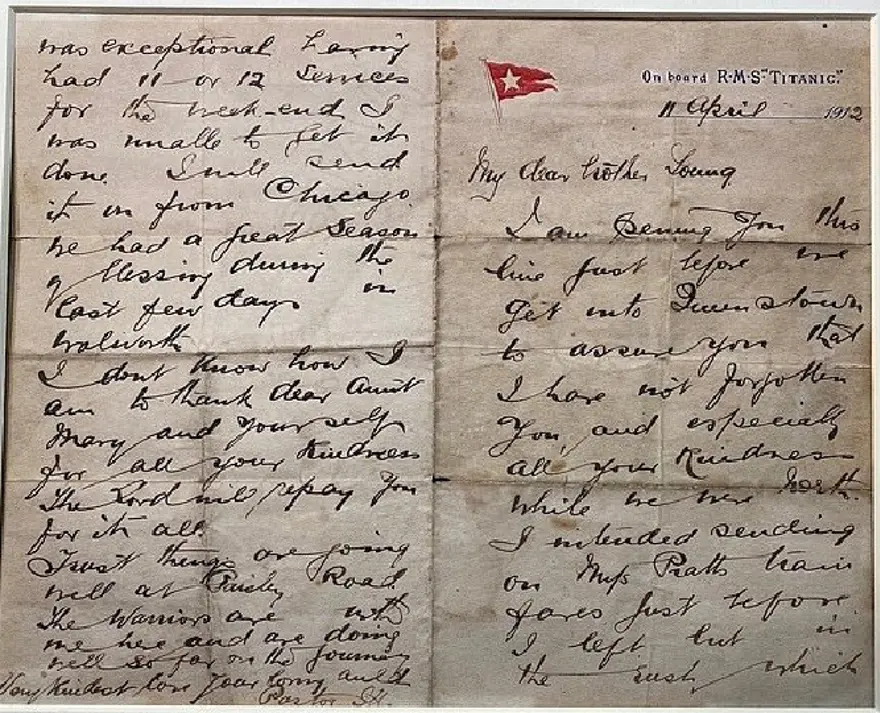 On board R·M·S "TITANIC".
11 April 1912
My dear brother Young
I am penning you this
line just before we
get into Queenstown
to assure you that
I have not forgotten
you, and especially
all your kindness
while we were North.
I intended sending
on Mrs Pratts train
fares just before
I left but in
the rush, which
was exceptional having
had 11 or 12 services
for the week-end I
was unable to get it
done. I will send
it on from Chicago.
we had a great season
of blessing during the
last few days in
walworth.
I dont know how I
am to thank dear Aunt
Mary and yourself
for all your kindness
The Lord will repay you
for it all.
Trust things are going
well at Paisley Road.
The Warriors are with
me here and are doing
well so far on the journey
Very kindest love your loving auld
Pastor